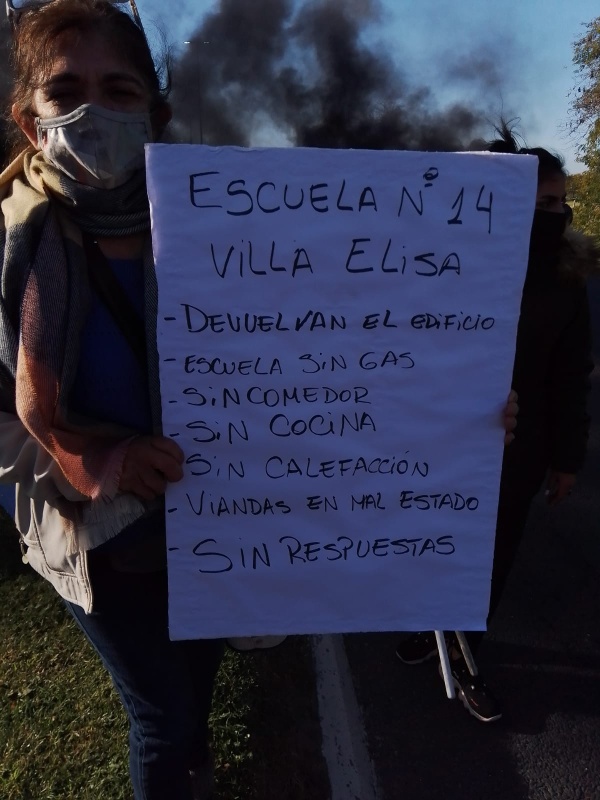 ESCUELA Nº 14
VILLA ELISA
- DEVUELVAN EL EDIFICIO
- ESCUELA SIN GAS
- SIN COMEDOR
- SIN COCINA
SIN CALEFACCIÓN
- VIANDAS EN MAL ESTADO
- SIN RESPUESTAS